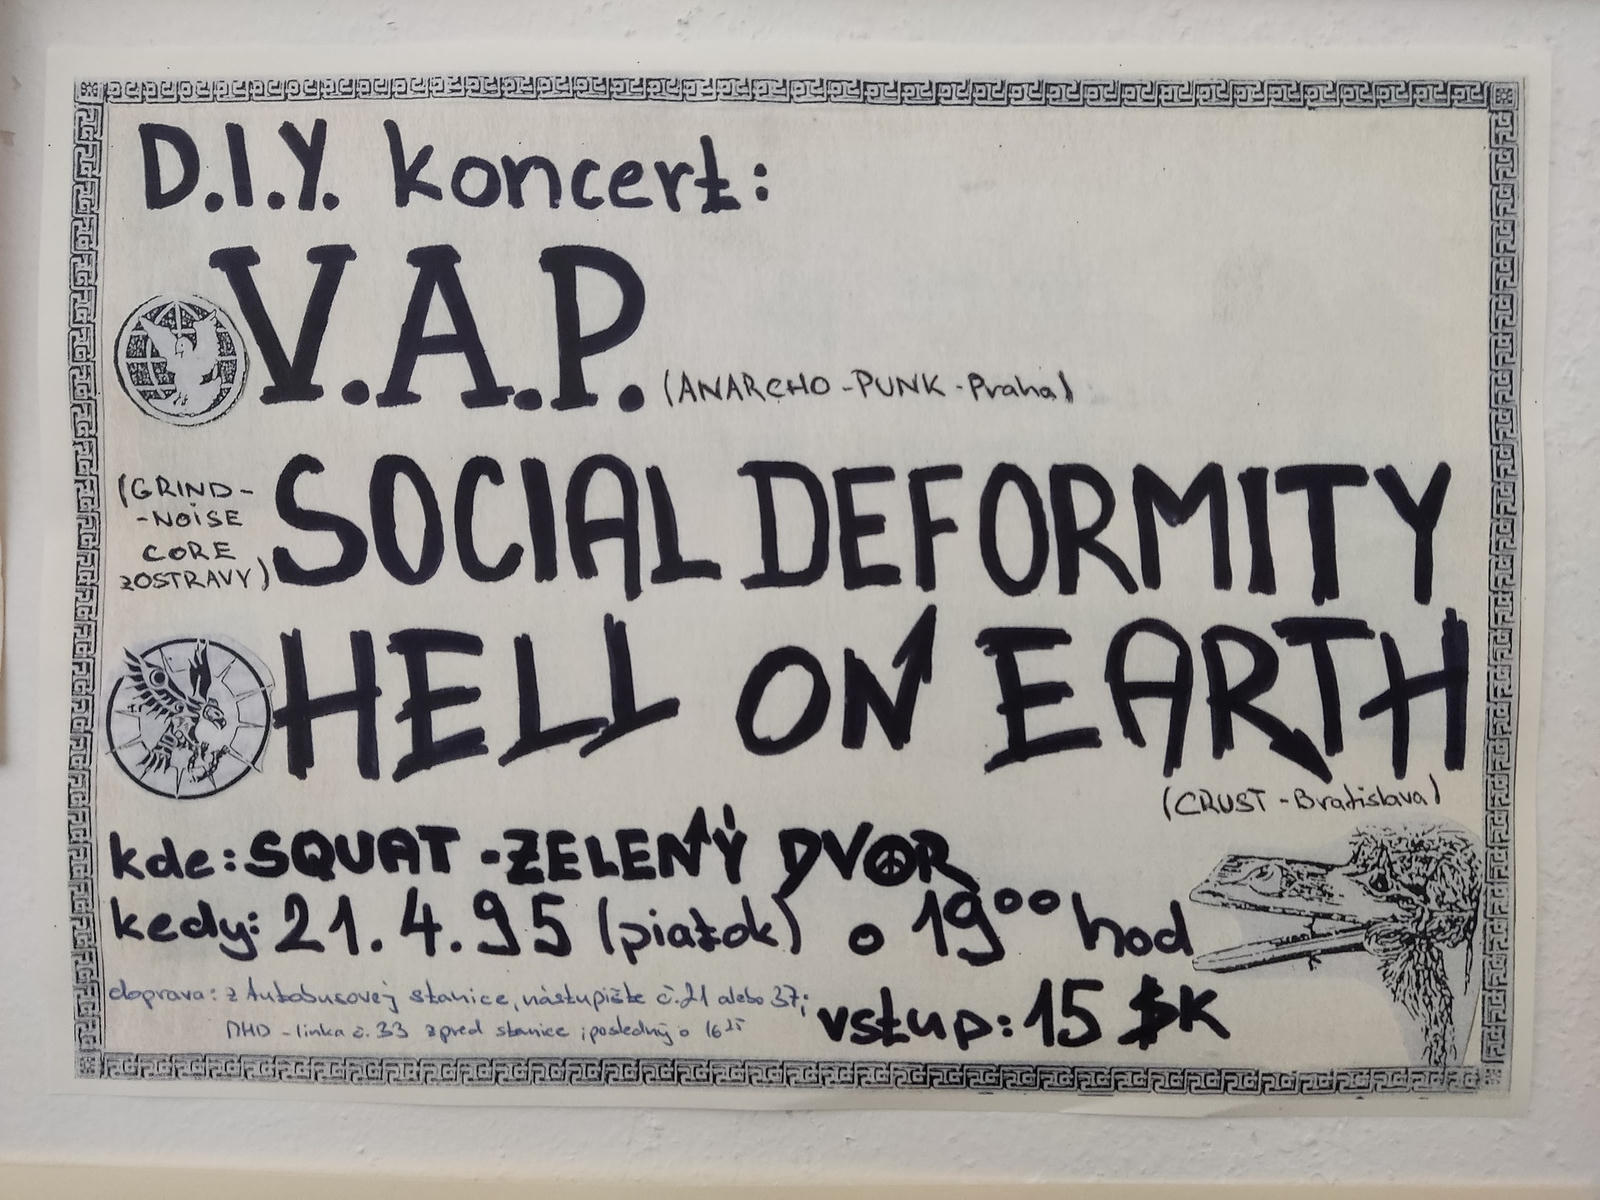 D.I.Y. koncert:
V.A.P. (ANARCHO-PUNK-Praha)
(GRIND-
-NOiSE
CORE
zOSTRAVY)
SOCIAL DEFORMITY
HELL ON EARTH
(CRUST-Bratislava)
kde: SQUAT-ZELENÝ DVOR
kedy: 21.4.95 (piatok) o 19⁰⁰ hod
doprava: z Autobusovej stanice, nástupište č. 21 alebo 37;
MHD - linka č. 33 spred stanice, posledný o 16²⁵
vstup: 15 $K